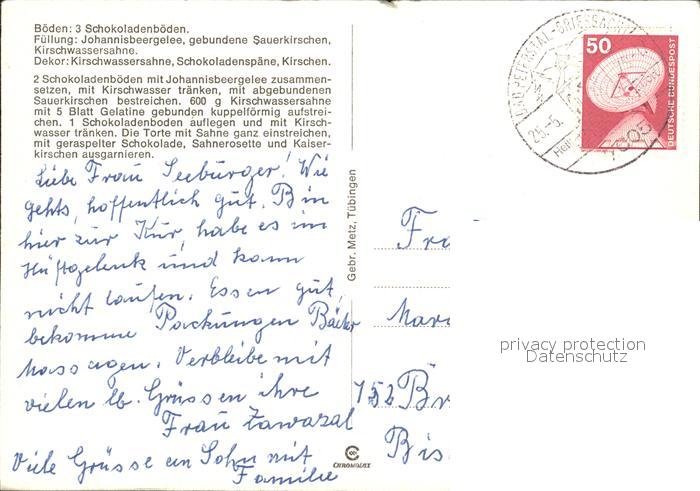 Böden: 3 Schokoladenböden.
Füllung: Johannisbeergelee, gebundene Sauerkirschen,
Kirschwassersahne.
Dekor: Kirschwassersahne, Schokoladenspäne, Kirschen.
2 Schokoladenböden mit Johannisbeergelee zusammen-
setzen, mit Kirschwasser tränken, mit abgebundenen
Sauerkirschen bestreichen. 600 g Kirschwassersahne
mit 5 Blatt Gelatine gebunden kuppelförmig aufstrei-
chen. 1 Schokoladenboden auflegen und mit Kirsch-
wasser tränken. Die Torte mit Sahne ganz einstreichen,
mit geraspelter Schokolade, Sahnerosette und Kaiser-
kirschen ausgarnieren.
Liebe Frau Seeburger! Wie
gehts, hoffentlich gut. Bin
hier zur Kur, habe es im
Hüftgelenk und kann
nicht laufen. Essen gut,
bekomme Packungen Bäder
Massagen. Verbleibe mit
vielen lb. Grüssen ihre
Frau Zawazal
Viele Grüsse an Sohn mit
Familie
Gebr. Metz, Tübingen
CHROMOLUX
BAD PETERSTAL-GRIESBACH
25.-5.
7605
50
DEUTSCHE BUNDESPOST
Fra
Mar
752 Br
Bis
privacy protection
Datenschutz